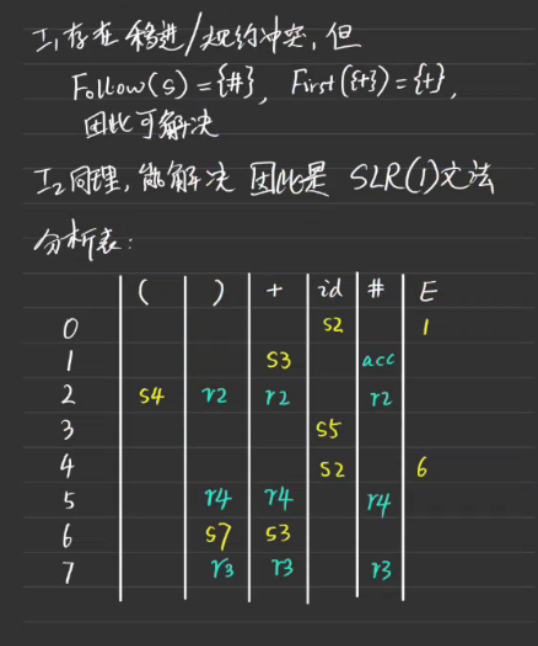 I₁存在移进/规约冲突，但
Follow(S)={#}, First({+})={+},
因此可解决
I₂同理，能解决 因此是 SLR(1)文法
分析表：
( ) + id # E
0 s2 1
1 s3 acc
2 s4 r2 r2 r2
3 s5
4 s2 6
5 r4 r4 r4
6 s7 s3
7 r3 r3 r3